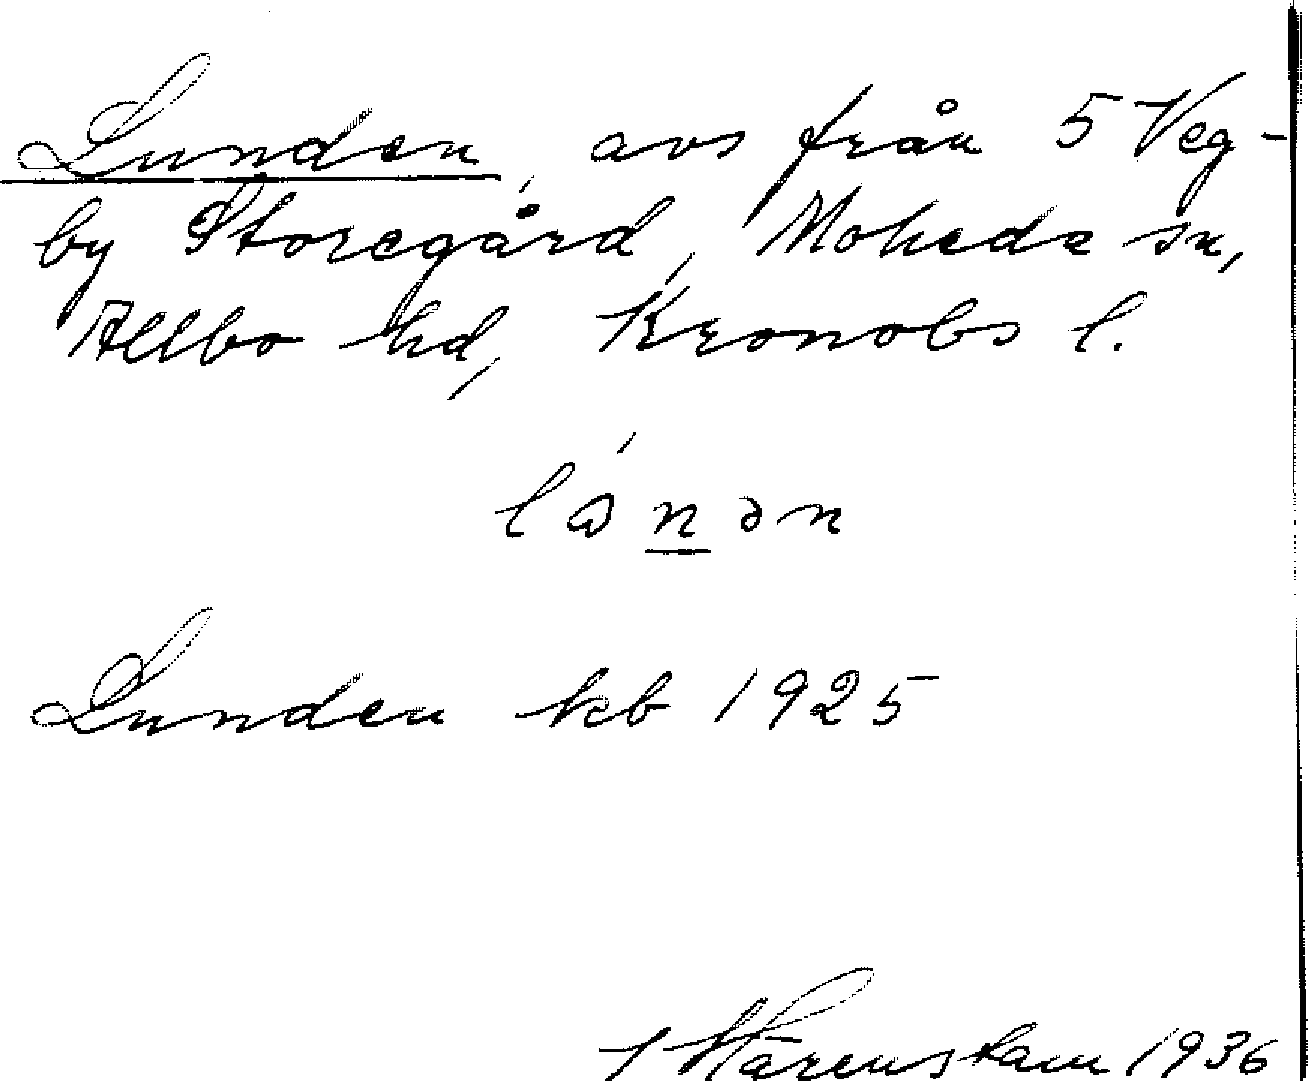 Lunden, avs från 5 Veg-
by Storegård, Moheda sn,
Allbo hd, Kronobs l.
lɷ́nən
Lunden kb 1925
Härenstam 1936